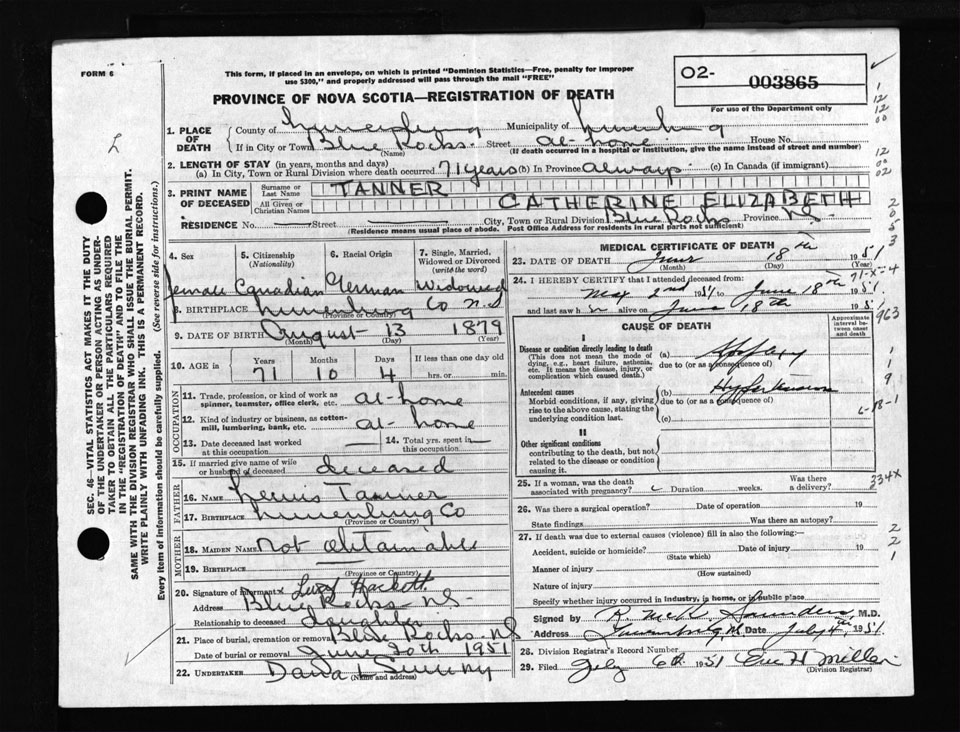 FORM 6
This form, if placed in an envelope, on which is printed "Dominion Statistics—Free, penalty for improper
use $300," and properly addressed will pass through the mail "FREE"
O2- 003865
For use of the Department only
PROVINCE OF NOVA SCOTIA—REGISTRATION OF DEATH
1. PLACE OF DEATH
County of Lunenburg Municipality of Lunenburg
If in City or Town Blue Rocks (Name) Street at-home House No.
(If death occurred in a hospital or institution, give the name instead of street and number)
2. LENGTH OF STAY (in years, months and days)
(a) In City, Town or Rural Division where death occurred 71 years (b) In Province Always (c) In Canada (if immigrant)
3. PRINT NAME OF DECEASED
Surname or Last Name TANNER
All Given or Christian Names CATHERINE ELIZABETH
RESIDENCE No. — Street — City, Town or Rural Division Blue Rocks Province N.S.
(Residence means usual place of abode. Post Office Address for residents in rural parts not sufficient)
4. Sex 5. Citizenship (Nationality) 6. Racial Origin 7. Single, Married, Widowed or Divorced (write the word)
female Canadian German Widowed
8. BIRTHPLACE Lunenburg Co N.S
(Province or Country)
9. DATE OF BIRTH August 13 1879
(Month) (Day) (Year)
10. AGE in Years Months Days If less than one day old
71 10 4 hrs. or min.
OCCUPATION
11. Trade, profession, or kind of work as spinner, teamster, office clerk, etc. at-home
12. Kind of industry or business, as cotten-mill, lumbering, bank, etc. at- home
13. Date deceased last worked at this occupation — 14. Total yrs. spent in this occupation —
15. If married give name of wife or husband of deceased deceased
FATHER
16. NAME Lewis Tanner
17. BIRTHPLACE Lunenburg Co
(Province or Country)
MOTHER
18. MAIDEN NAME not obtainable
19. BIRTHPLACE —
(Province or Country)
20. Signature of informant x Lucy Hackett
Address Blue Rocks NS-
Relationship to deceased daughter
21. Place of burial, cremation or removal Blue Rocks. NS
Date of burial or removal June 20th 1951
22. UNDERTAKER
(Name and address)
MEDICAL CERTIFICATE OF DEATH
23. DATE OF DEATH June 18th 1951
(Month) (Day) (Year)
24. I HEREBY CERTIFY that I attended deceased from:
May 2nd 1951 to June 18th 1951
and last saw h er alive on June 18th 1951
CAUSE OF DEATH
Approximate interval between onset and death
I
Disease or condition directly leading to death (a) Apoplexy
(This does not mean the mode of dying, e.g., heart failure, asthenia, etc. It means the disease, injury, or complication which caused death.)
due to (or as a consequence of)
Antecedent causes (b) Hypertension
Morbid conditions, if any, giving rise to the above cause, stating the underlying condition last.
due to (or as a consequence of)
(c)
II
Other significant conditions
contributing to the death, but not related to the disease or condition causing it
25. If a woman, was the death associated with pregnancy? Duration weeks. Was there a delivery?
26. Was there a surgical operation? Date of operation 19
State findings Was there an autopsy?
27. If death was due to external causes (violence) fill in also the following:—
Accident, suicide or homicide? Date of injury 19
(State which)
Manner of injury
(How sustained)
Nature of injury
Specify whether injury occurred in industry, in home, or in public place
Signed by R McK Saunders M.D.
Address Lunenburg NS Date July 4th, 1951
28. Division Registrar's Record Number
29. Filed July 6th 1951 H Miller
(Division Registrar)
SEC. 46—VITAL STATISTICS ACT MAKES IT THE DUTY
OF THE UNDERTAKER OR PERSON ACTING AS UNDER-
TAKER TO OBTAIN ALL THE PARTICULARS REQUIRED
IN THE "REGISTRATION OF DEATH" AND TO FILE THE
SAME WITH THE DIVISION REGISTRAR WHO SHALL ISSUE THE BURIAL PERMIT.
WRITE PLAINLY WITH UNFADING INK. THIS IS A PERMANENT RECORD.
Every item of information should be carefully supplied. (See reverse side for instructions.)
334X